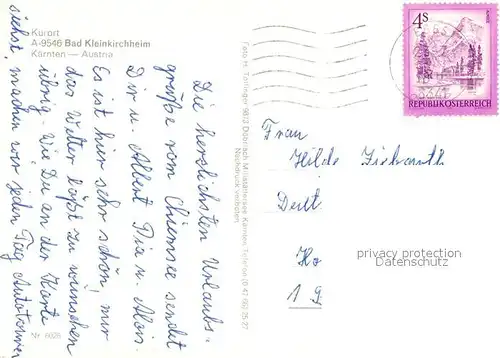 Kurort
A-9546 Bad Kleinkirchheim
Kärnten — Austria
Die herzlichsten Urlaubs-
grüße vom Chiemsee sendet
Dir u. Albert Pia u. Alois.
Es ist hier sehr schön, nur
das Wetter läßt zu wünschen
übrig. Wie Du an der Karte
siehst, machen wir jeden Tag Autotouren
Foto H. Tollinger 9873 Döbriach Millstättersee Kärnten Telefon
Nachdruck verboten
4S
REPUBLIK ÖSTERREICH
Frau
Hilde
Deut
Ho
1 9
privacy protection
Datenschutz
Nr. 6026